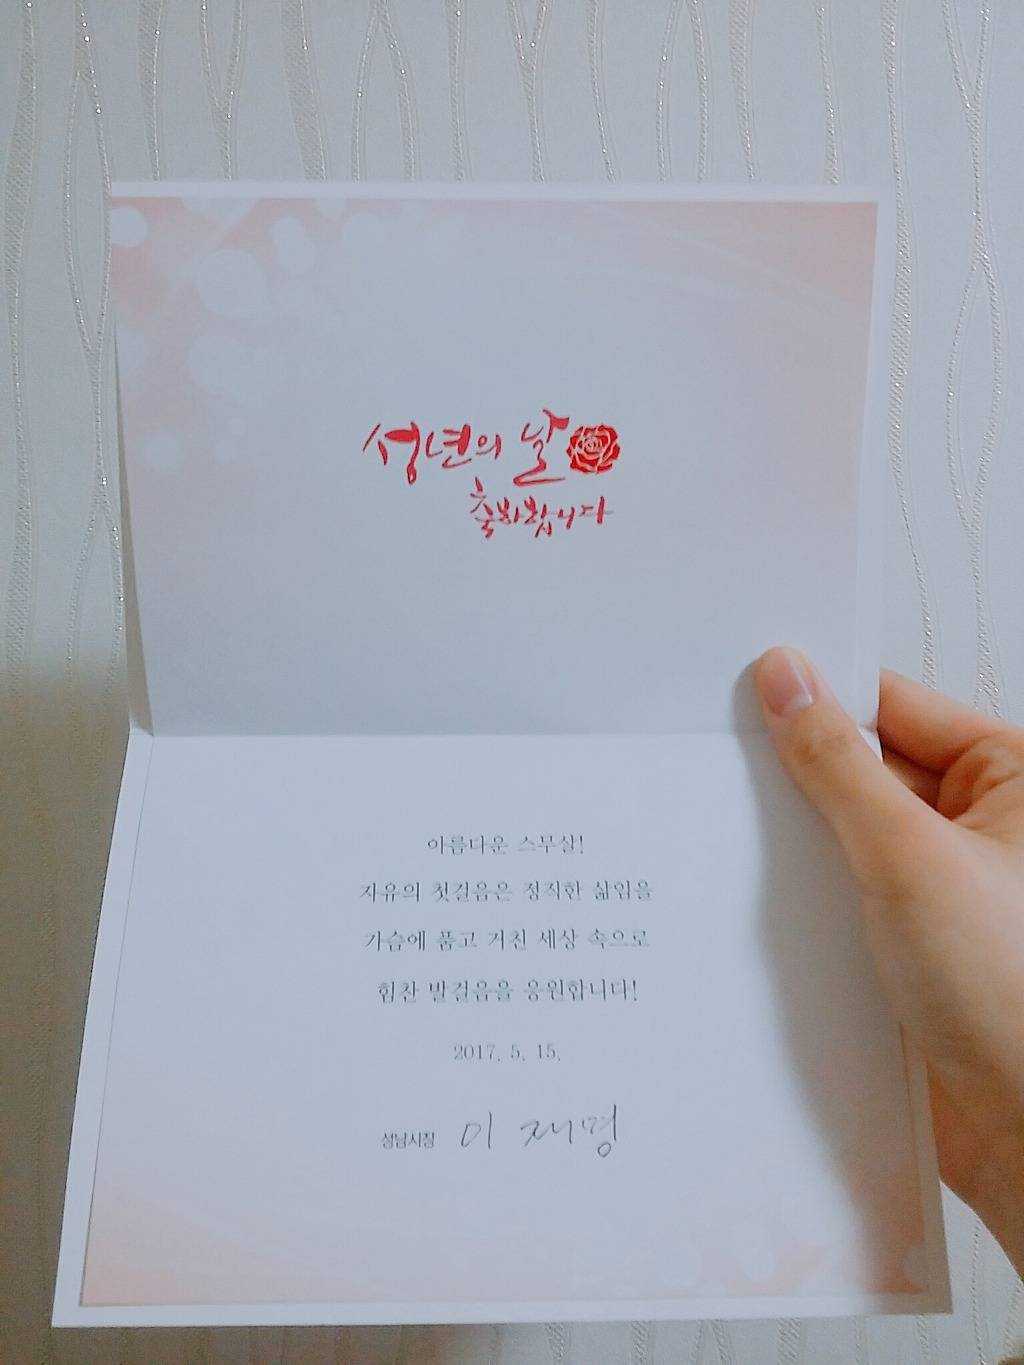 성년의 날
축하합니다
아름다운 스무살!
자유의 첫걸음은 정직한 삶임을
가슴에 품고 거친 세상 속으로
힘찬 발걸음을 응원합니다!
2017. 5. 15.
성남시장 이재명